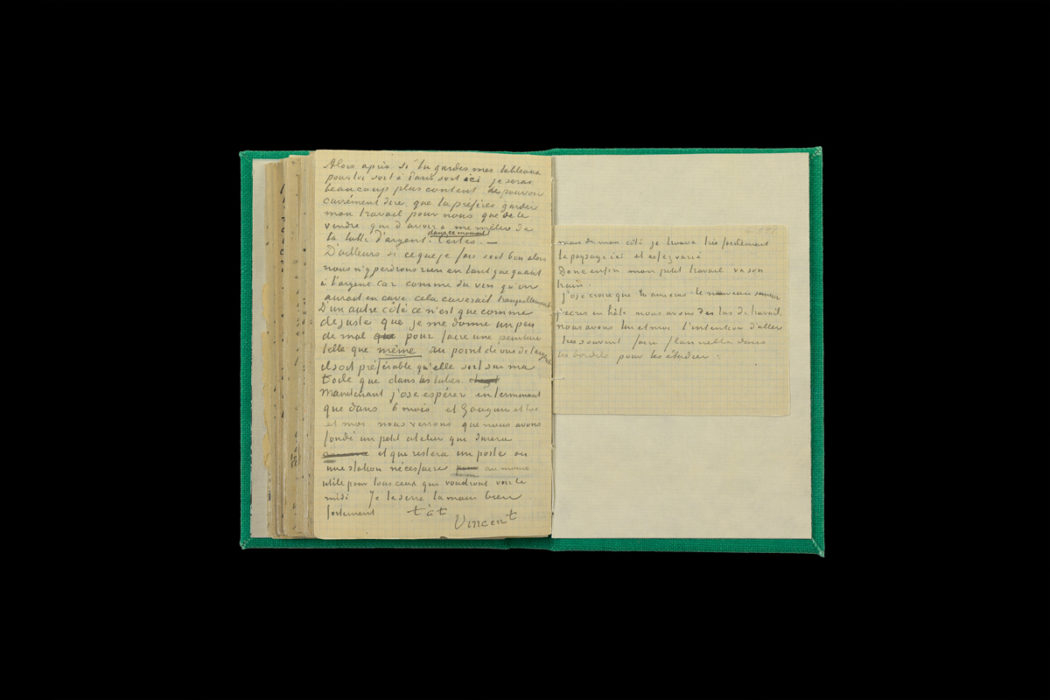 Alors après si tu gardes mes tableaux
pour toi soit à Paris soit ici je serai
beaucoup plus content de pouvoir
carrément dire que tu préfères garder
mon travail pour nous que de le
vendre que d'avoir à me mêler de
dans ce moment
la lutte d'argent. Certes. —
D'ailleurs si ce que je fais soit bon alors
nous n'y perdrons rien en tant que quant
à l'argent car comme du vin qu'on
aurait en cave cela cuverait tranquillement
D'un autre côté ce n'est que comme
de juste que je me donne un peu
de mal pour faire une peinture
telle que même au point de vue de l'argent
il soit préférable qu'elle soit sur ma
toile que dans les tubes.
Maintenant j'ose espérer en terminant
que dans 6 mois et Gauguin et toi
et moi nous verrons que nous avons
fondé un petit atelier qui durera
et qui restera un poste ou
une station nécessaire au moins
utile pour tous ceux qui voudront voir le
midi Je te serre la main bien
fortement t. à t.
Vincent
mais de mon côté je trouve très fortement
le paysage ici et assez varié
Donc enfin mon petit travail va son
train.
j'ose croire que tu aimeras le nouveau
j'écris en hâte nous avons des tas de travail
nous avons lui et moi l'intention d'aller
très souvent faire dans
les bordels pour les étudier.